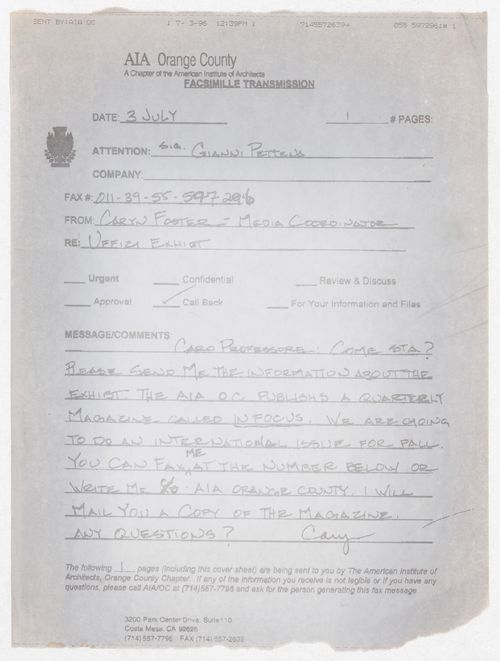 SENT BY:AIA OC ; 7- 3-96 ; 12:39PM ; 7145572639→ 055 597296;# 1
AIA Orange County
A Chapter of the American Institute of Architects
FACSIMILLE TRANSMISSION
DATE: 3 JULY 1 # PAGES:
ATTENTION: SIG. GIANNI PETTENA
COMPANY:
FAX #: 011-39-55-597296
FROM: CARYN FOSTER - MEDIA COORDINATOR
RE: UFFIZI EXHIBIT
Urgent Confidential Review & Discuss
Approval ✓ Call Back For Your Information and Files
MESSAGE/COMMENTS:
CARO PROFESSORE: COME STA?
PLEASE SEND ME THE INFORMATION ABOUT THE
EXHIBIT. THE AIA OC PUBLISHS A QUARTERLY
MAGAZINE CALLED IN FOCUS. WE ARE GOING
TO DO AN INTERNATIONAL ISSUE FOR FALL.
YOU CAN FAX ME AT THE NUMBER BELOW OR
WRITE ME AIA ORANGE COUNTY. I WILL
MAIL YOU A COPY OF THE MAGAZINE.
ANY QUESTIONS? Caryn
The following 1 pages (including this cover sheet) are being sent to you by The American Institute of
Architects, Orange County Chapter. If any of the information you receive is not legible or if you have any
questions, please call AIA/OC at (714)557-7796 and ask for the person generating this fax message
3200 Park Center Drive, Suite 110
Costa Mesa, CA 92626
(714) 557-7796 FAX (714) 557-2639